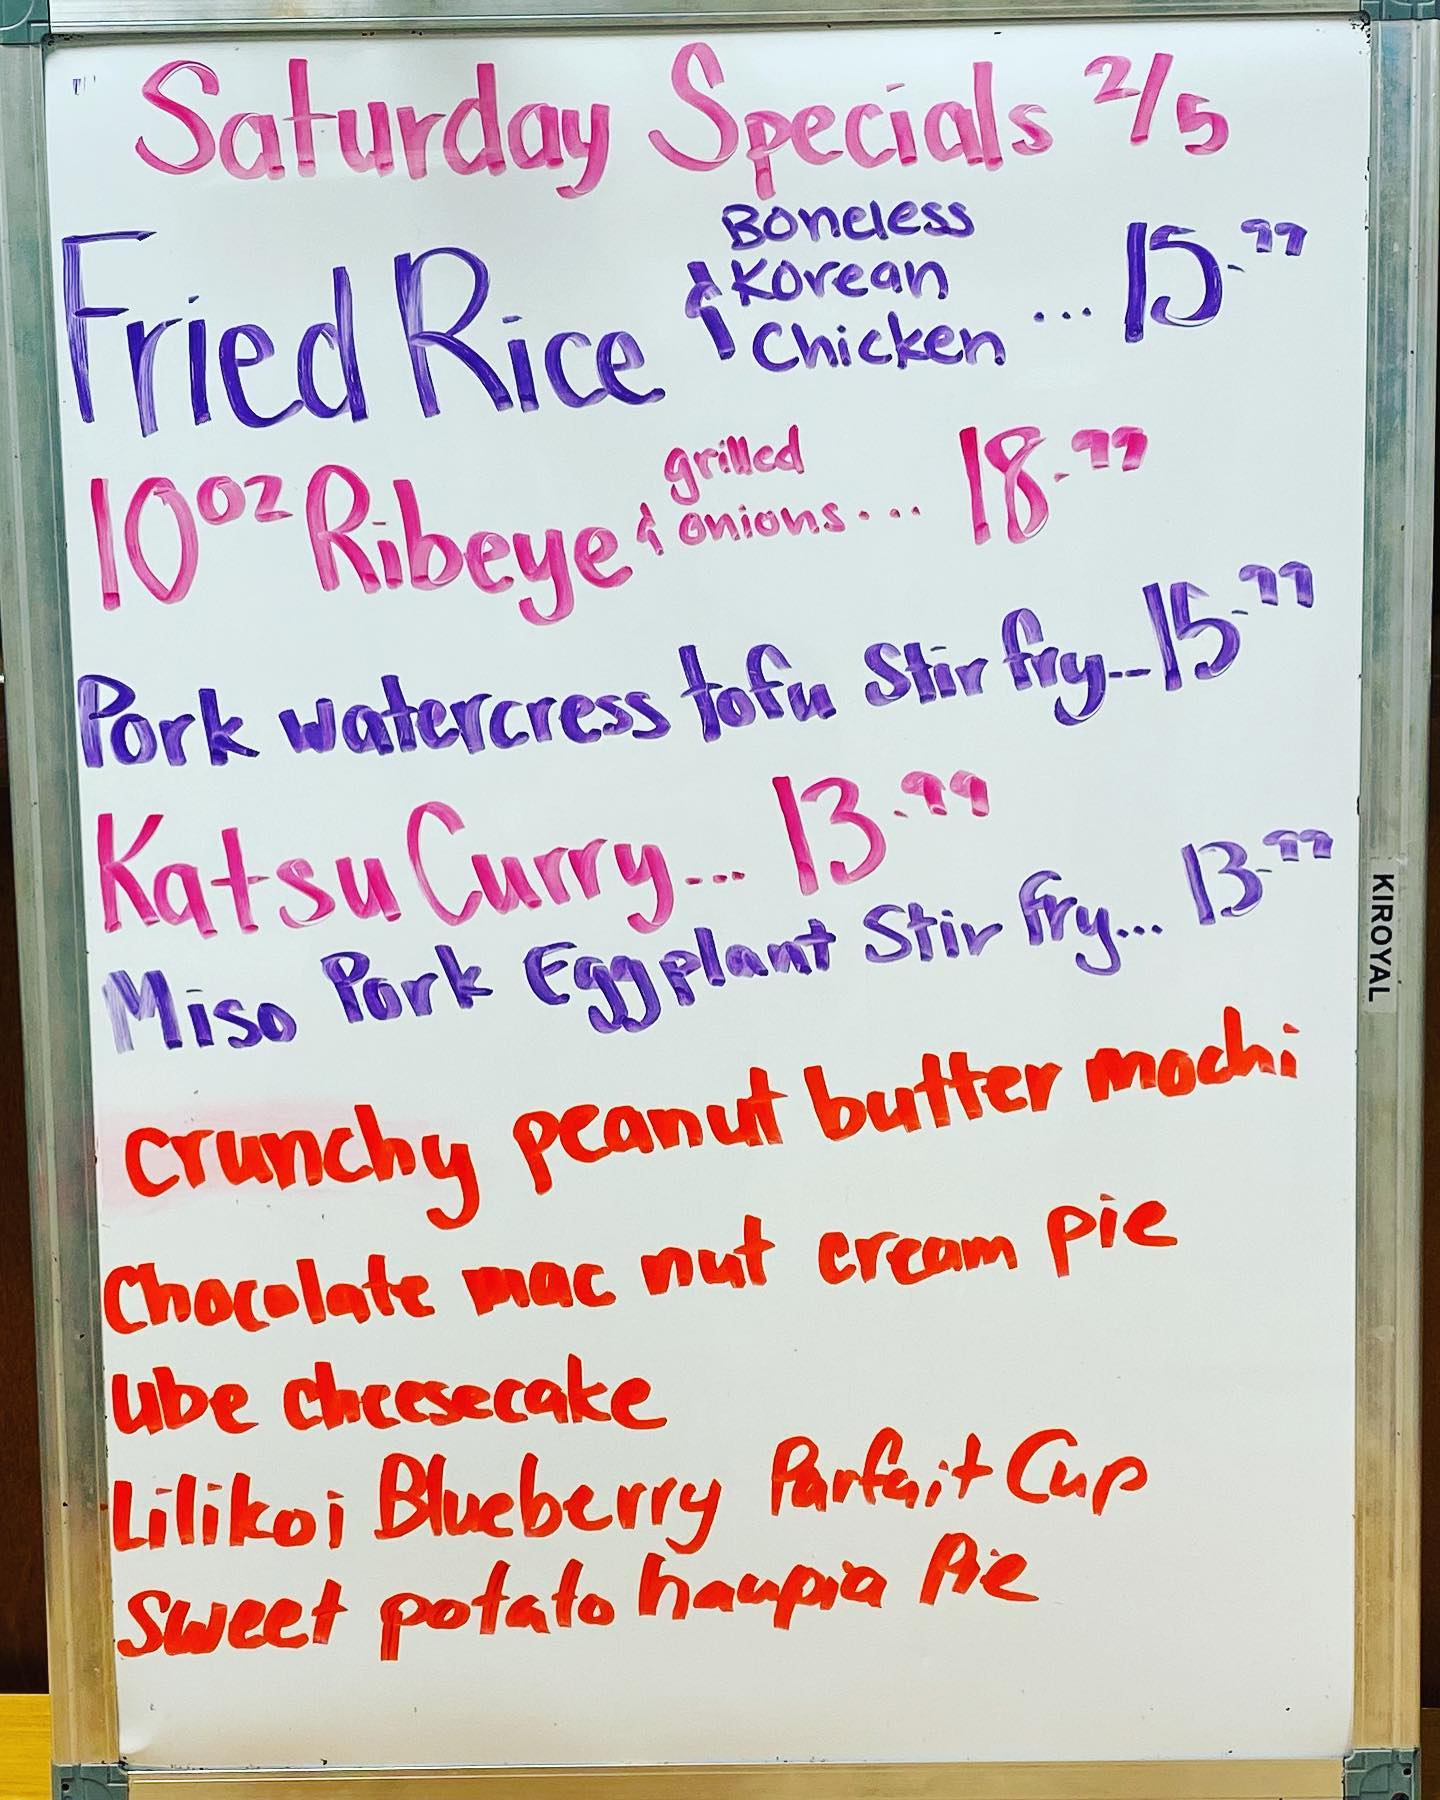 Saturday Specials 2/5
Fried Rice & Boneless Korean Chicken ... 15.99
10oz Ribeye & grilled onions... 18.99
Pork watercress tofu Stir fry...15.99
Katsu Curry... 13.99
Miso Pork Eggplant Stir fry... 13.99
KIROYAL
Crunchy peanut butter mochi
Chocolate mac nut cream pie
Ube cheesecake
Lilikoi Blueberry Parfait Cup
Sweet potato haupia Pie